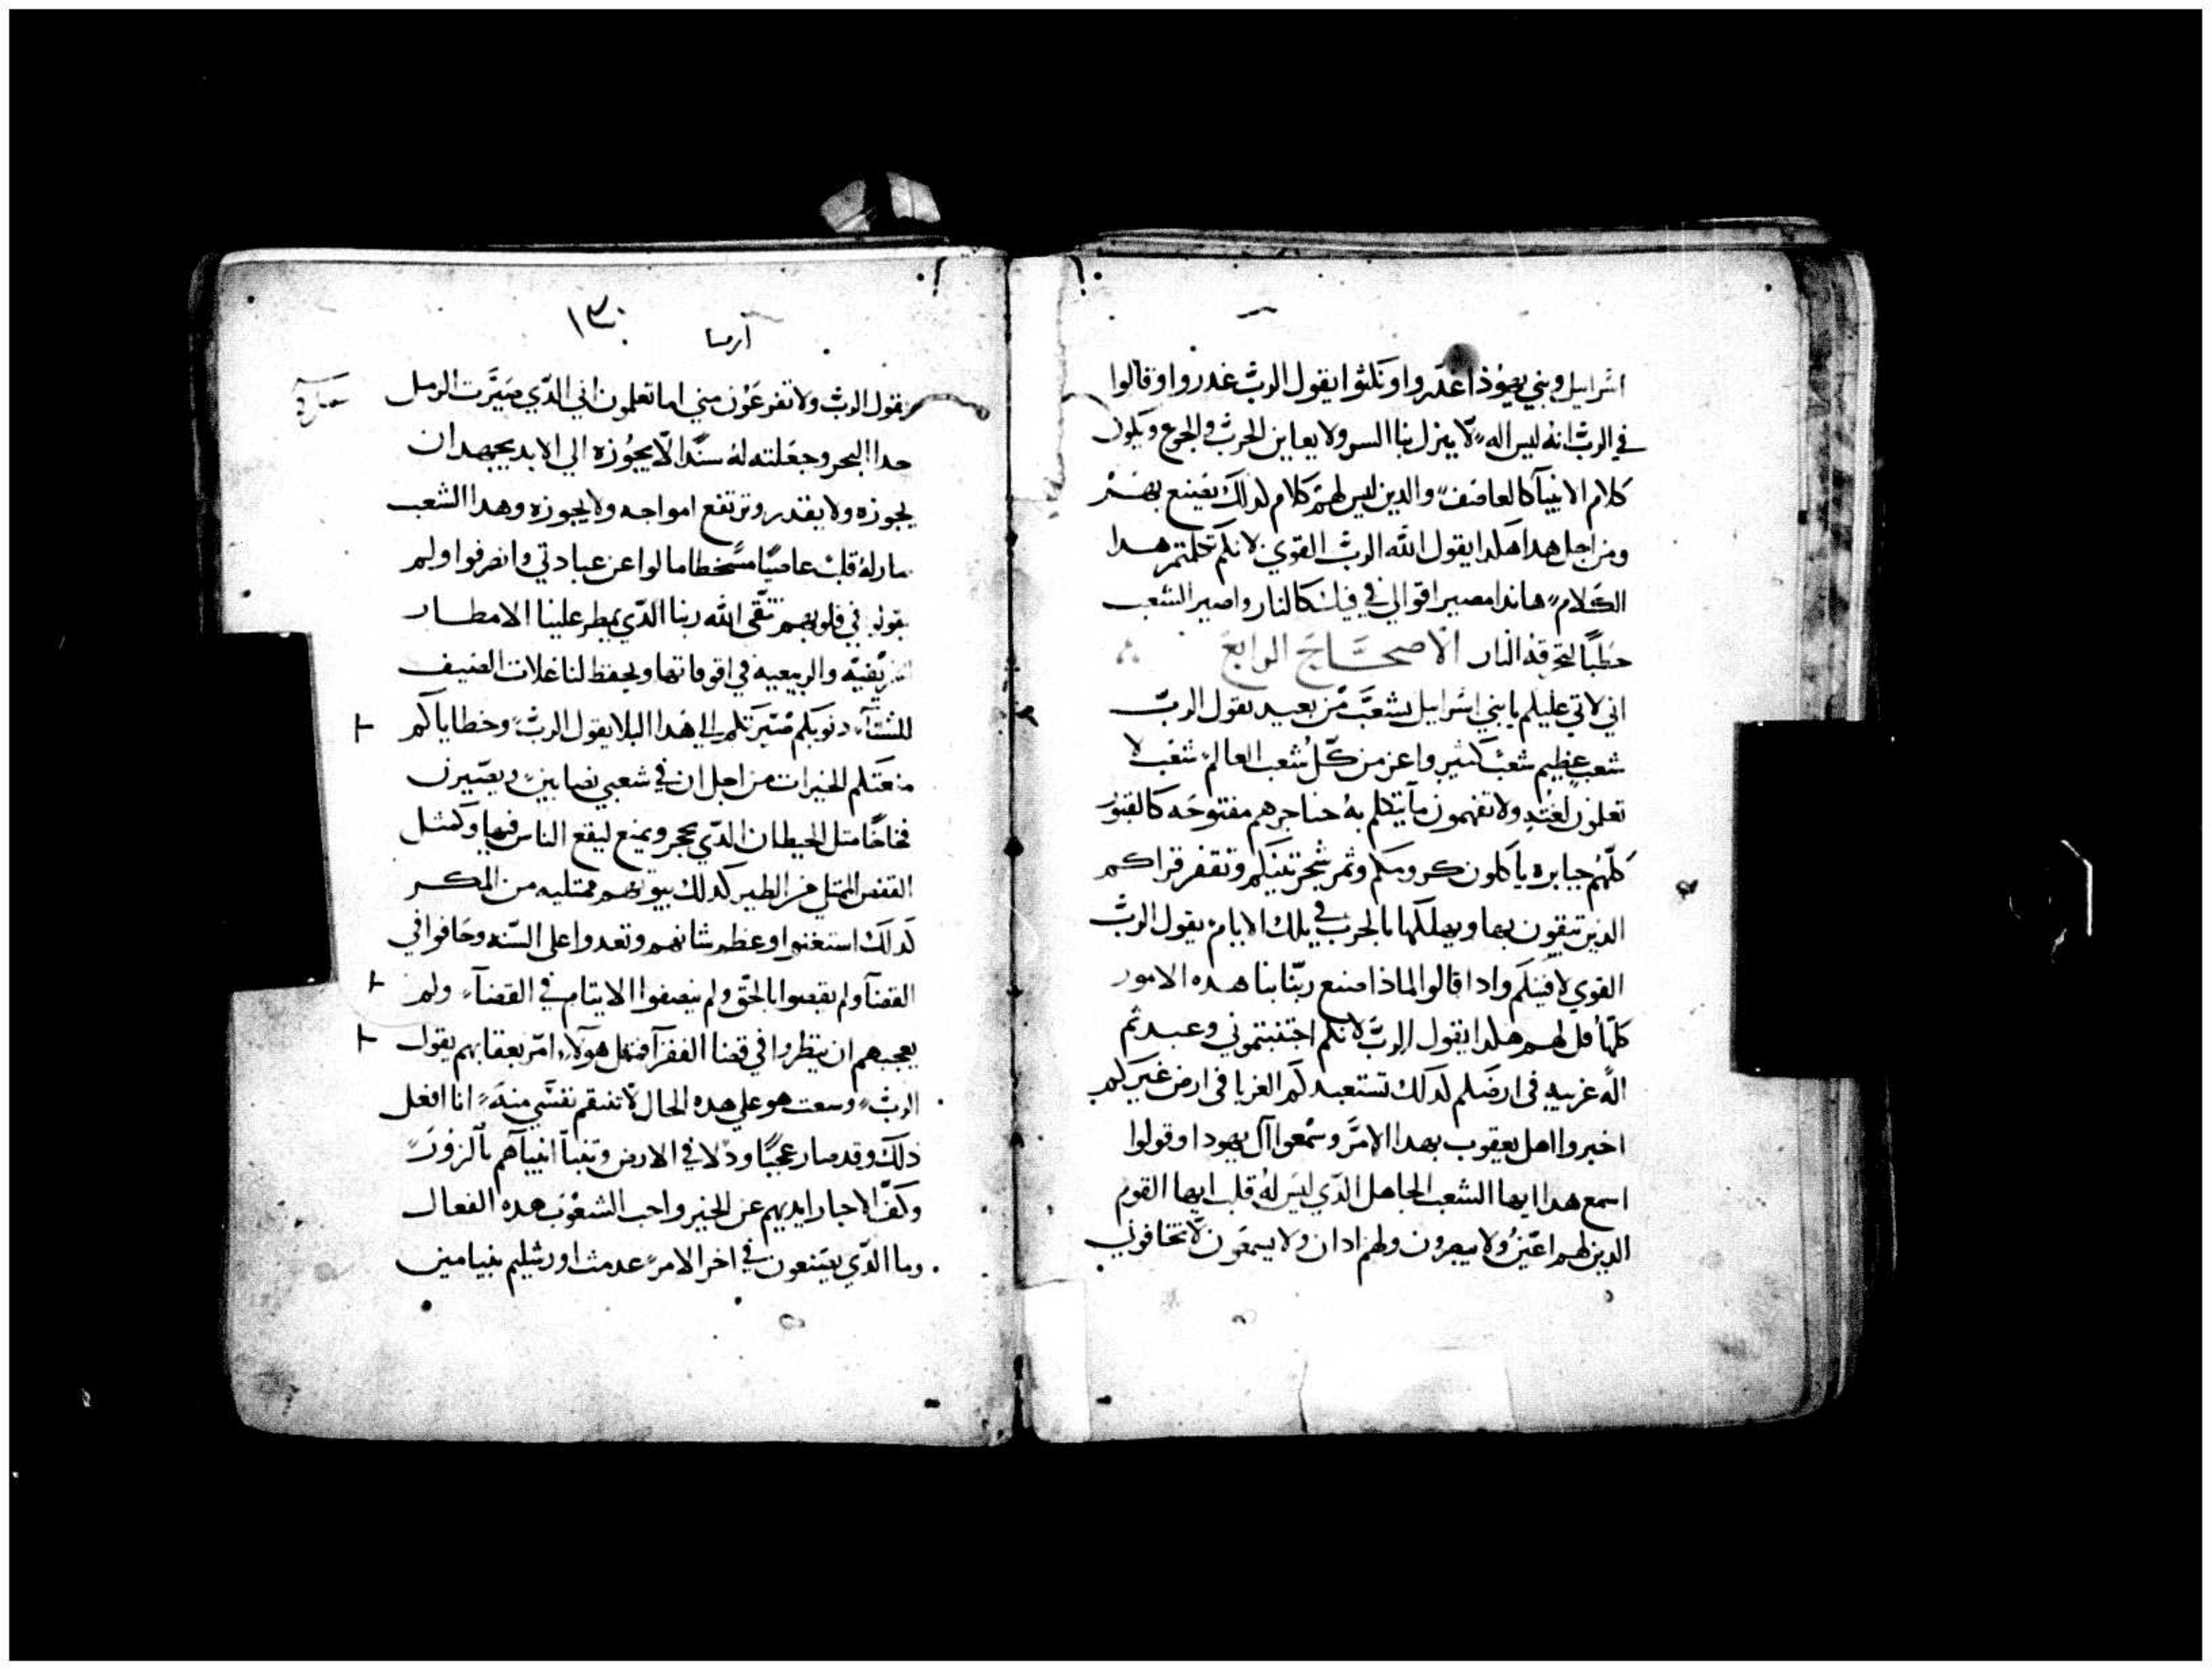 اسراييل وبني يهوذا غدروا ونكثوا يقول الرب غدروا وقالوا
في الرب انه ليس اله لا ينزل بنا السو ولا يعاين الحرب والجوع ويكون
كلام الانبيآ كالعاصف والدين ليس لهم كلام لدلك يصنع بهم
ومن اجل هدا هكدا يقول الله الرب القوي لانكم تكلمتم هدا
الكلام هاندا مصير اقوالي في فيك كالنار واصير الشعب
حطبا لتحرقه النار الاصحاح الرابع
اني لاتي عليكم يا بني اسراييل بشعب من بعيد يقول الرب
شعب عظيم شعب كثير واعز من كل شعب العالم شعب لا
تعلمون لغته ولا تفهمون ما يتكلم به حناجرهم مفتوحه كالقبور
كلهم جبابره ياكلون كرومكم وثمر شجر تينكم وتقفر قراكم
الذين تتقون بها ويهلكها بالحرب في تلك الايام يقول الرب
القوي لافنيكم وادا قالوا لماذا صنع ربنا بنا هده الامور
كلها قل لهم هكدا يقول الرب لانكم اجتنبتموني وعبدتم
الهه غريبه في ارضكم لدلك تستعبدكم الغربا في ارض غيركم
اخبروا اهل يعقوب بهدا الامر وسمعوا آل يهودا وقولوا
اسمع هدا ايها الشعب الجاهل الدي ليس له قلب ايها القوم
الدين لهم اعين ولا يبصرون ولهم ادان ولا يسمعون لا تخافوني
١٣٠
ارميا
يقول الرب ولا تفزعون مني اما تعلمون اني الدي صيرت الرمل
حدا البحر وجعلته له سدا لا يجوزه الي الابد يجهد ان
يجوزه ولا يقدر وترتفع امواجه ولا يجوزه وهدا الشعب
صار له قلب عاصيا مسخطا مالوا عن عبادتي وانصرفوا ولم
يقولوا في قلوبهم نتقي الله ربنا الدي يمطر علينا الامطار
الخريفيه والربيعيه في اوقاتها ويحفظ لنا غلات الصيف
للشتآ دنوبكم صيرتكم الي هدا البلا يقول الرب وخطاياكم
منعتكم الخيرات من اجل ان في شعبي نصابين ويصيرون
فخاخا مثل الحيطان الدي يحجر ويمنع ليقع الناس فيها وكمثل
القفص الممتلي من الطير كدلك بيوتهم ممتليه من المكر
لدلك استغنوا وعظم شانهم وتعدوا علي السنه وحافوا في
القضآ ولم يقضوا بالحق ولم ينصفوا الايتام في القضآ ولم
يعجبهم ان ينظروا في قضا الفقرآ افمثل هولآ امر بعقابهم يقول
الرب وسعت هو علي هده الحال لا تنتقم نفسي منه انا افعل
ذلك وقد صار عجبا ودلا في الارض وتنبآ انبيآهم بالزور
وكف الاحبار ايديهم عن الخير واحب الشعوب هده الفعال
وما الدي يصنعون في اخر الامر عدمت اورشليم بنيامين